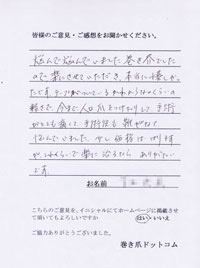 皆様のご意見・ご感想をお聞かせください。
悩んで悩んでいました。巻き爪でした
ので、楽にさせていただき、本当に嬉しかっ
たです。テープがついているかわからないくらいの
軽さで、今まで人口爪をつけたりして
とても痛くて
悩んでいました。少し価格は
がこれくらいで楽に治るなら ありがたい
です。
お名前
こちらのご意見を、イニシャルにてホームページに掲載させ
て頂いてもよろしいですか はい・いいえ
ご協力ありがとうございました。
巻き爪ドットコム